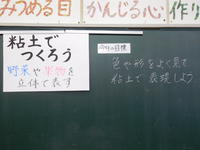 みつめる目
かんじる心
作り
粘土で
つくろう
野菜や果物を
立体で表す
今日の目標
色や形をよく見て
粘土で表現しよう